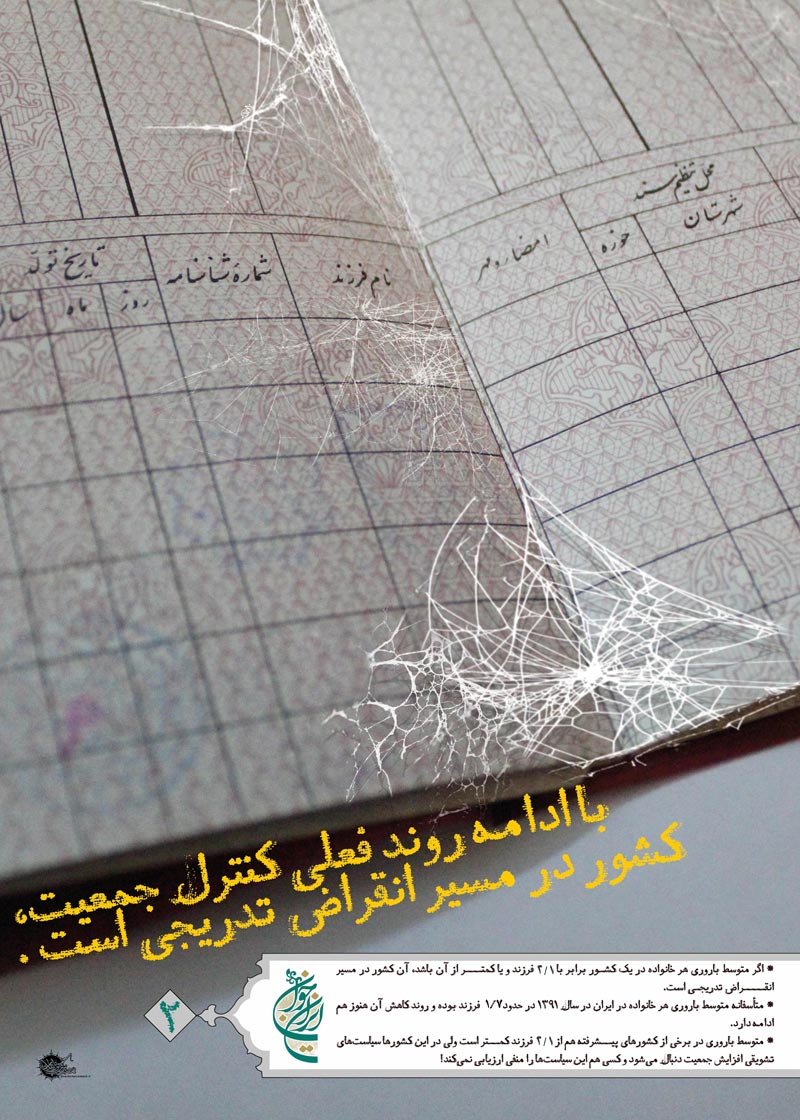 محل تنظیم سند
امضا و مهر
حوزه
شهرستان
نام فرزند
شماره شناسنامه
تاریخ تولد
روز
ماه
سال
با ادامه روند فعلی کنترل جمعیت،
کشور در مسیر انقراض تدریجی است.
* اگر متوسط باروری هر خانواده در یک کشور برابر با ۲/۱ فرزند و یا کمتر از آن باشد، آن کشور در مسیر
انقراض تدریجی است.
* متأسفانه متوسط باروری هر خانواده در ایران در سال ۱۳۹۱ در حدود ۱/۷ فرزند بوده و روند کاهش آن هنوز هم
ادامه دارد.
* متوسط باروری در برخی از کشورهای پیشرفته هم از ۲/۱ فرزند کمتر است ولی در این کشورها سیاست‌های
تشویقی افزایش جمعیت دنبال می‌شود و کسی هم این سیاست‌ها را منفی ارزیابی نمی‌کند!
ایران جوان
۲